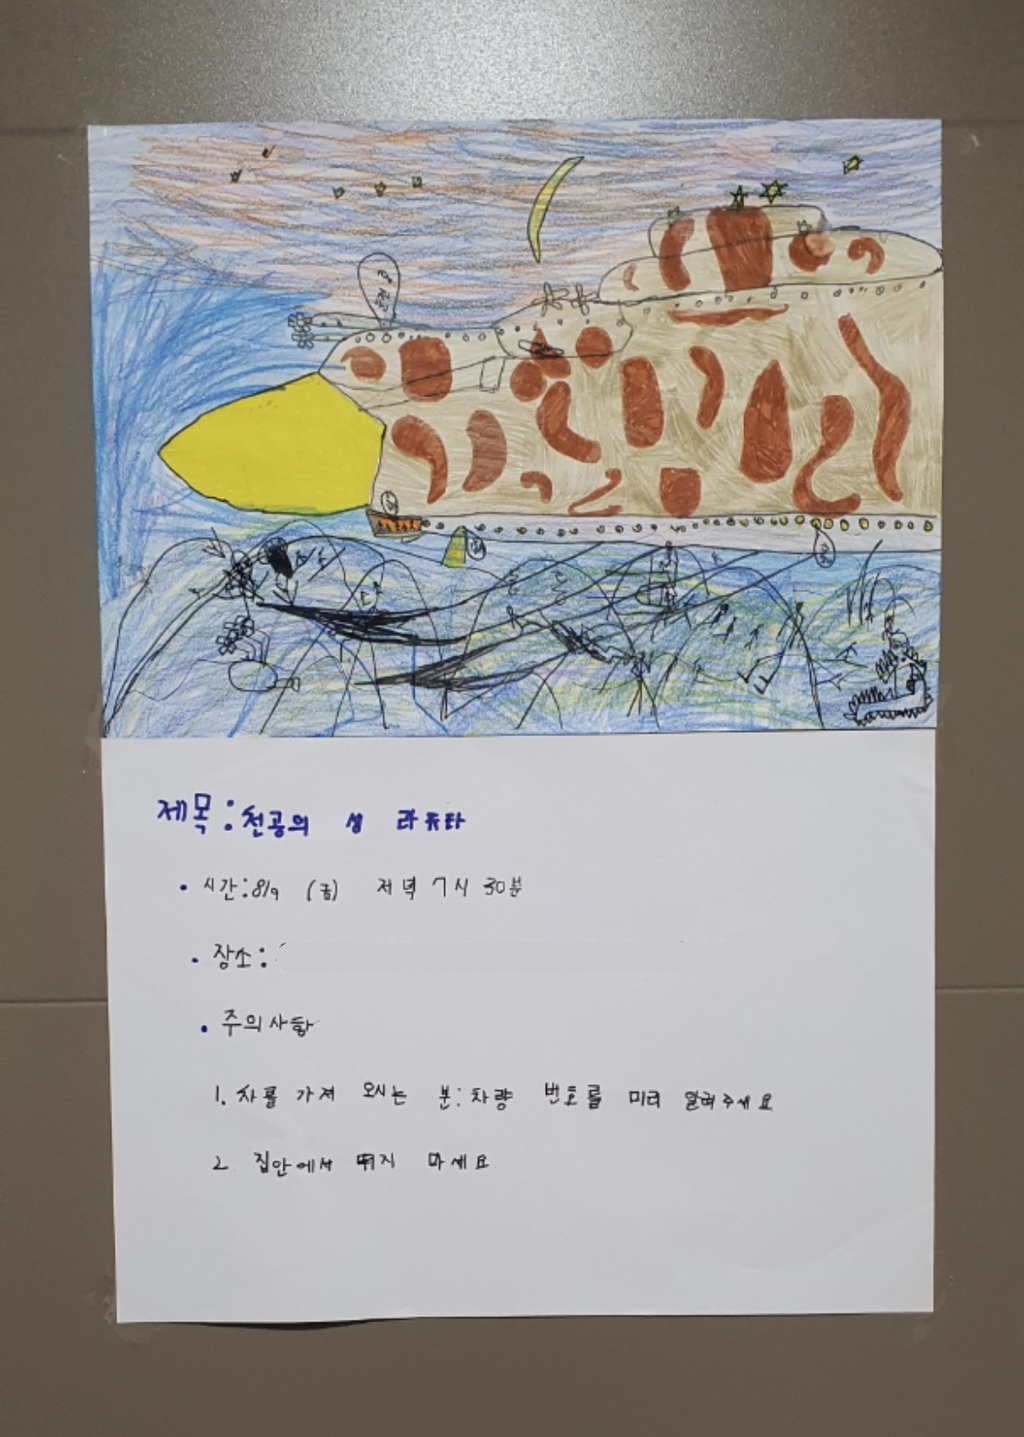 제목:천공의 성 라퓨타
• 시간:8/9 (금) 저녁 7시 30분
• 장소:
• 주의사항
1. 차를 가져 오시는 분:차량 번호를 미리 알려주세요
2. 집안에서 뛰지 마세요